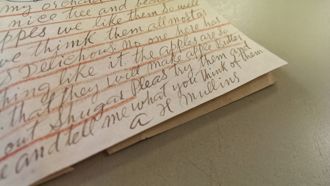 my
nice tree and bea
apples we like them so well
we think them allmost
d Delicious no one here has
thing like it the apples are so
that they will make apple Butter
out Shugar Pleas try them and
e and tell me what you think of them
A H Mullins